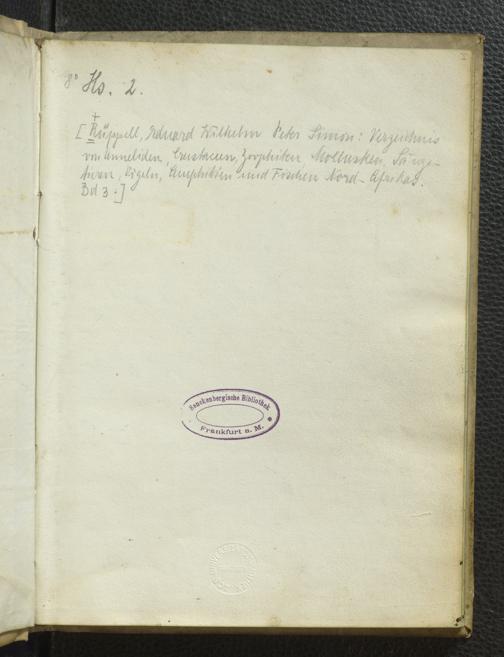 8° Hs. 2.
[Rüppell, Eduard Wilhelm Peter Simon: Verzeichnis
von Anneliden, Crustaceen, Zoophiten Mollusken, Säuge-
tieren, Vögeln, Amphibien und Fischen Nord-Afrikas.
Bd 3.]
Senckenbergische Bibliothek
Frankfurt a. M.